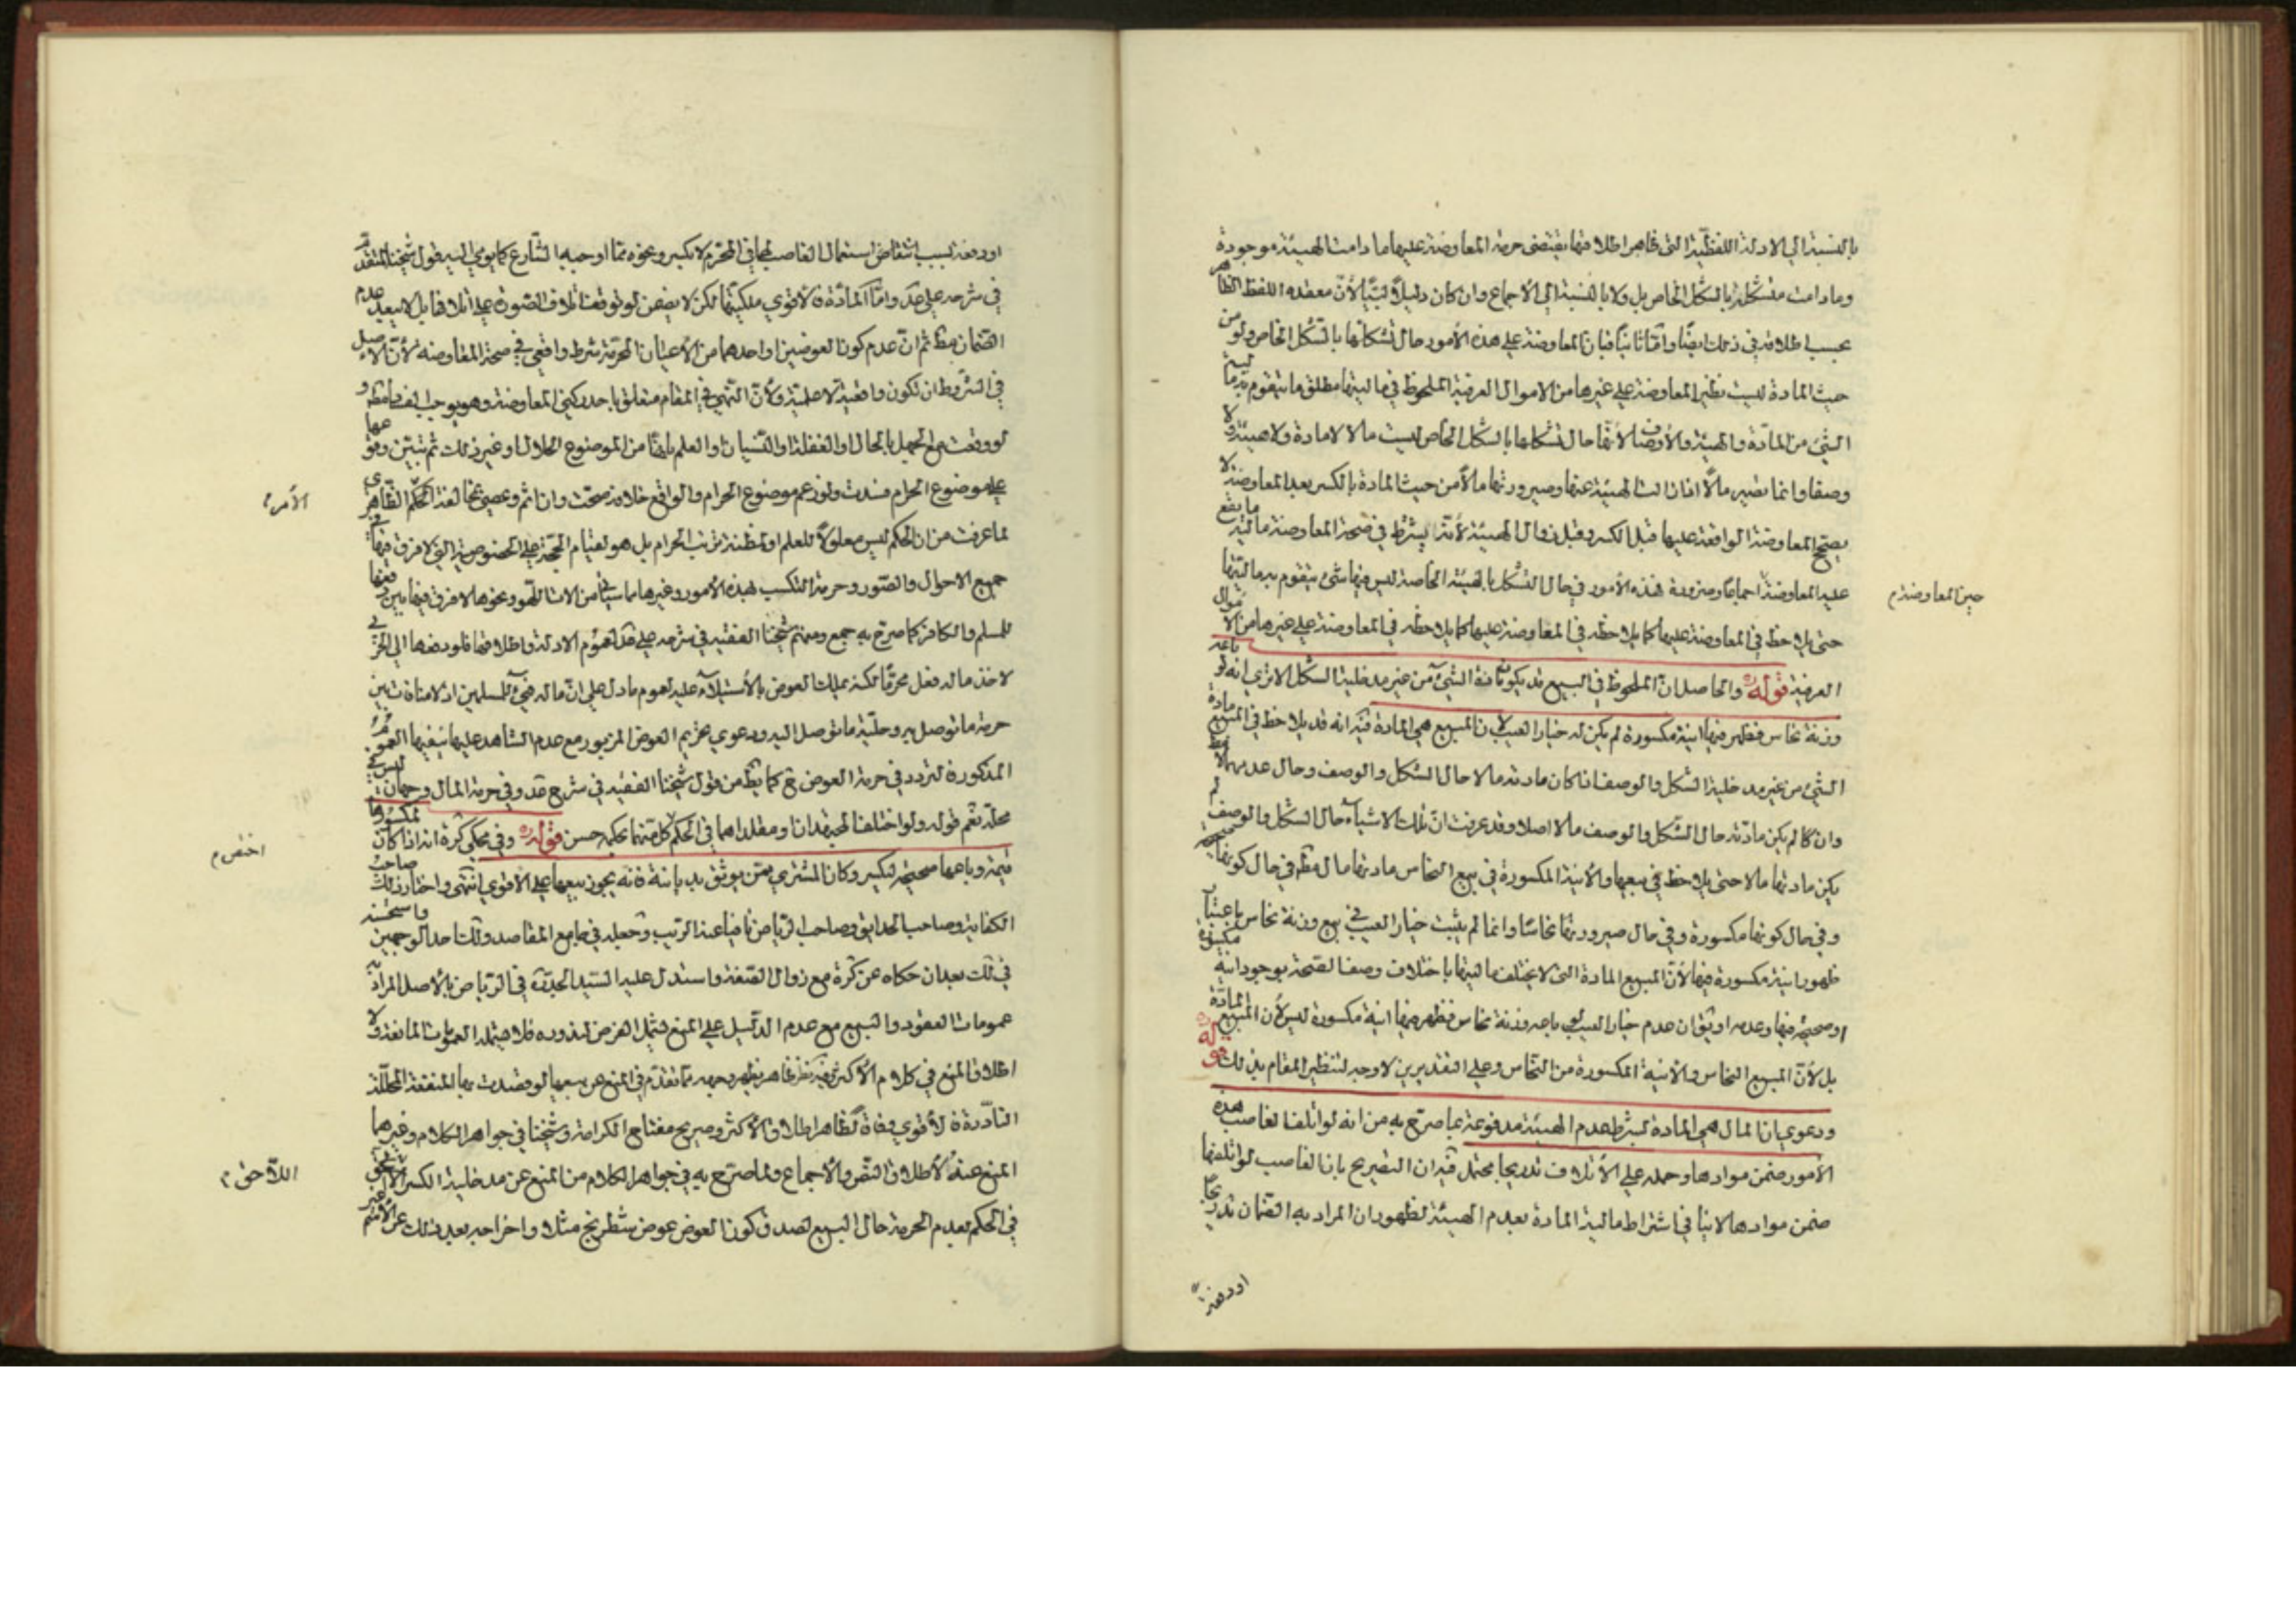 بالنسبة الي الادلة اللفظية التي ظاهر اطلاقها يقتضى حرمة المعاوضة عليها ما دامت الهيئة موجودة
وما دامت متشكلة بالشكل الخاص بل ولا بالنسبة الي الاجماع وان كان دليلا لبيا لأن معقده اللفظ الظاهر
بحسب اطلاقه في ذلك ايضا واما ثانيا فبان المعاوضة علي هذه الأمور حال تشكلها بالشكل الخاص ولو من
حيث المادة ليست نظير المعاوضة علي غيرها من الاموال العرفية الملحوظ في ماليتها مطلق ما يتقوم به مالية
الشئ من المادة والهيئة والأوصاف لأنها حال تشكلها بالشكل الخاص ليست مالا لا مادة ولا هيئة ولا
وصفا وانما تصير مالا اذا زالت الهيئة عنها وصيرورتها مالا من حيث المادة بالكسر بعد المعاوضة لا
يصحح المعاوضة الواقعة عليها قبل الكسر وقبل زوال الهيئة لأنه يشترط في صحة المعاوضة مالية ما يقع
عليه المعاوضة حين المعاوضة اجماعا وضرورة فهذه الأمور في حال التشكل بالهيئة الخاصة ليس فيها شئ يتقوم به ماليتها
حتى يلاحظ في المعاوضة عليها كما يلاحظه في المعاوضة عليها كما يلاحظه في المعاوضة علي غيرها من الأموال
العرفية قوله والحاصل ان الملحوظ في البيع قد يكون مادة الشئ من غير مدخلية الشكل الا تري انه لو باعه
وزنة نحاس فظهر فيها انية مكسورة لم يكن له خيار العيب لان المبيع هي المادة فيه انه قد يلاحظ في المبيع مادة
الشئ من غير مدخلية الشكل والوصف اذا كان مادته مالا حال الشكل والوصف وحال عدمهما
وان كا لم يكن مادته حال الشكل والوصف مالا اصلا وقد عرفت ان تلك الاشياء حال الشكل والوصف لم
يكن مادتها مالا حتى يلاحظ في بيعها والأنية المكسورة في بيع النحاس مادتها مال مطلقا في حال كونها صحيحة
وفي حال كونها مكسورة وفي حال صيرورتها نحاسا وانما لم يثبت خيار العيب في بيع وزنة نحاس باعتبار
ظهور انية مكسورة فيها لأن المبيع المادة التى لا يختلف ماليتها باختلاف وصف الصحة بوجود انية مكسورة
او صحيحة فيها وعدمه او يقال ان عدم خيار العيب في باعه وزنة نحاس فظهر فيها انية مكسورة ليس لأن المبيع المادة
بل لأن المبيع النحاس والأنية المكسورة من النحاس وعلي التقديرين لا وجه لتنظير المقام بذلك قوله
ودعوي ان المال هي المادة بشرط عدم الهيئة مدفوعة بما صرح به من انه لو اتلف الغاصب هذه
الأمور ضمن موادها وحمله علي الأتلاف تدريجا محتمل فيه ان التصريح بان الغاصب لو اتلفها
ضمن موادها لا ينافي اشتراط مالية المادة بعدم الهيئة لظهور ان المراد به الضمان تدريجا
او دفعة
حين المعاوضة م
او دفعة بسبب انتفاض استعمال الغاصب لها في المحرم لا بكسر ونحوه مما اوجبه الشارع كما يومي اليه قول شيخنا المتقدم
في شرحه علي عد واما المادة فالاقوي ملكيتها لكن لا يضمن لو توقف اتلاف الصورة علي اتلافها بل لا يبعد عدم
الضمان مطلقا ثم ان عدم كون العوضين او احدهما من الأعيان المحرمة شرط واقعي في صحة المعاوضة لأن الاصل
في الشروط ان تكون واقعية لا علمية ولأن النهي في المقام متعلق باحد ركني المعاوضة وهو يوجب الفساد مطلقا و
لو وقعت مع الجهل بالحال او الغفلة او النسيان او العلم بانها من الموضوع الحلال او غير ذلك ثم تبين وقوعها
علي موضوع الحرام فسدت ولو زعم موضوع الحرام والواقع خلافه صحت وان اثم وعصي بمخالفة الحكم الظاهري
لما عرفت من ان الحكم ليس معلولا للعلم او لمظنة ترتب الحرام بل هو لقيام الحجة علي الخصوصية التي لا فرق فيها في
جميع الاحوال والصور وحرمة التكسب بهذه الأمور وغيرها مما سيأتي من الات اللهو ونحوها لا فرق فيها بين دفعها
للمسلم والكافر كما صرح به جمع ومنهم شيخنا الفقيه في شرحه علي عد لعموم الادلة واطلاقها فلو دفعها الي الحربي
لاخذ ماله فعل محرما لكنه يملك العوض بالأستيلاء عليه لعموم ما دل علي ان ماله فئ للمسلمين اذ لا منافات بين
حرمة ما توصل به وحلية ما توصل اليه ودعوي تحريم العوض المزبور مع عدم الشاهد عليها ينفيها العموم
المذكورة لتردد في حرمة العوض ح كما يظهر من قول شيخنا الفقيه في شرح عد وفي حرمة المال وجهان ليس في
محله نعم قوله ولو اختلف المجتهدان او مقلداهما في الحكم كل منهما بحكمه حسن قوله وفي محكي كرة انه اذا كان لمكسورها
قيمة وباعها صحيحة لتكسر وكان المشتري ممن يوثق بديانته فانه يجوز بيعها علي الأقوي انتهى واختار ذلك صاحب
الكفاية وصاحب الحدائق وصاحب الرياض نافيا عنه الريب وجعله في جامع المقاصد ولك احد الوجهين واستحسنه
في لك بعد ان حكاه عن كرة مع زوال الصفة واستدل عليه السيد الجد قده في الرياض بالأصل المراد به
عمومات العقود والبيع مع عدم الدليل علي المنع يشمل الفرض لندوره فلا يشمله العمومات المانعة ولا
اطلاق المنع في كلام الأكثر وفيه نظر ظاهر يظهر وجهه مما تقدم في المنع عن بيعها لو قصدت بها المنفعة المحللة
النادرة فالأقوي وفاقا لظاهر اطلاق الأكثر وصريح مفتاح الكرامة وشيخنا في جواهر الكلام وغيرهما
المنع عنه لأطلاق النص والأجماع ولما صرح به في جواهر الكلام من المنع عن مدخلية الكسر اللاحق
في الحكم بعدم الحرمة حال البيع لصدق كون العوض عوض شطرنج مثلا واخراجه بعد ذلك عن الاسم
الأمر م
اختص م
اللاحق م